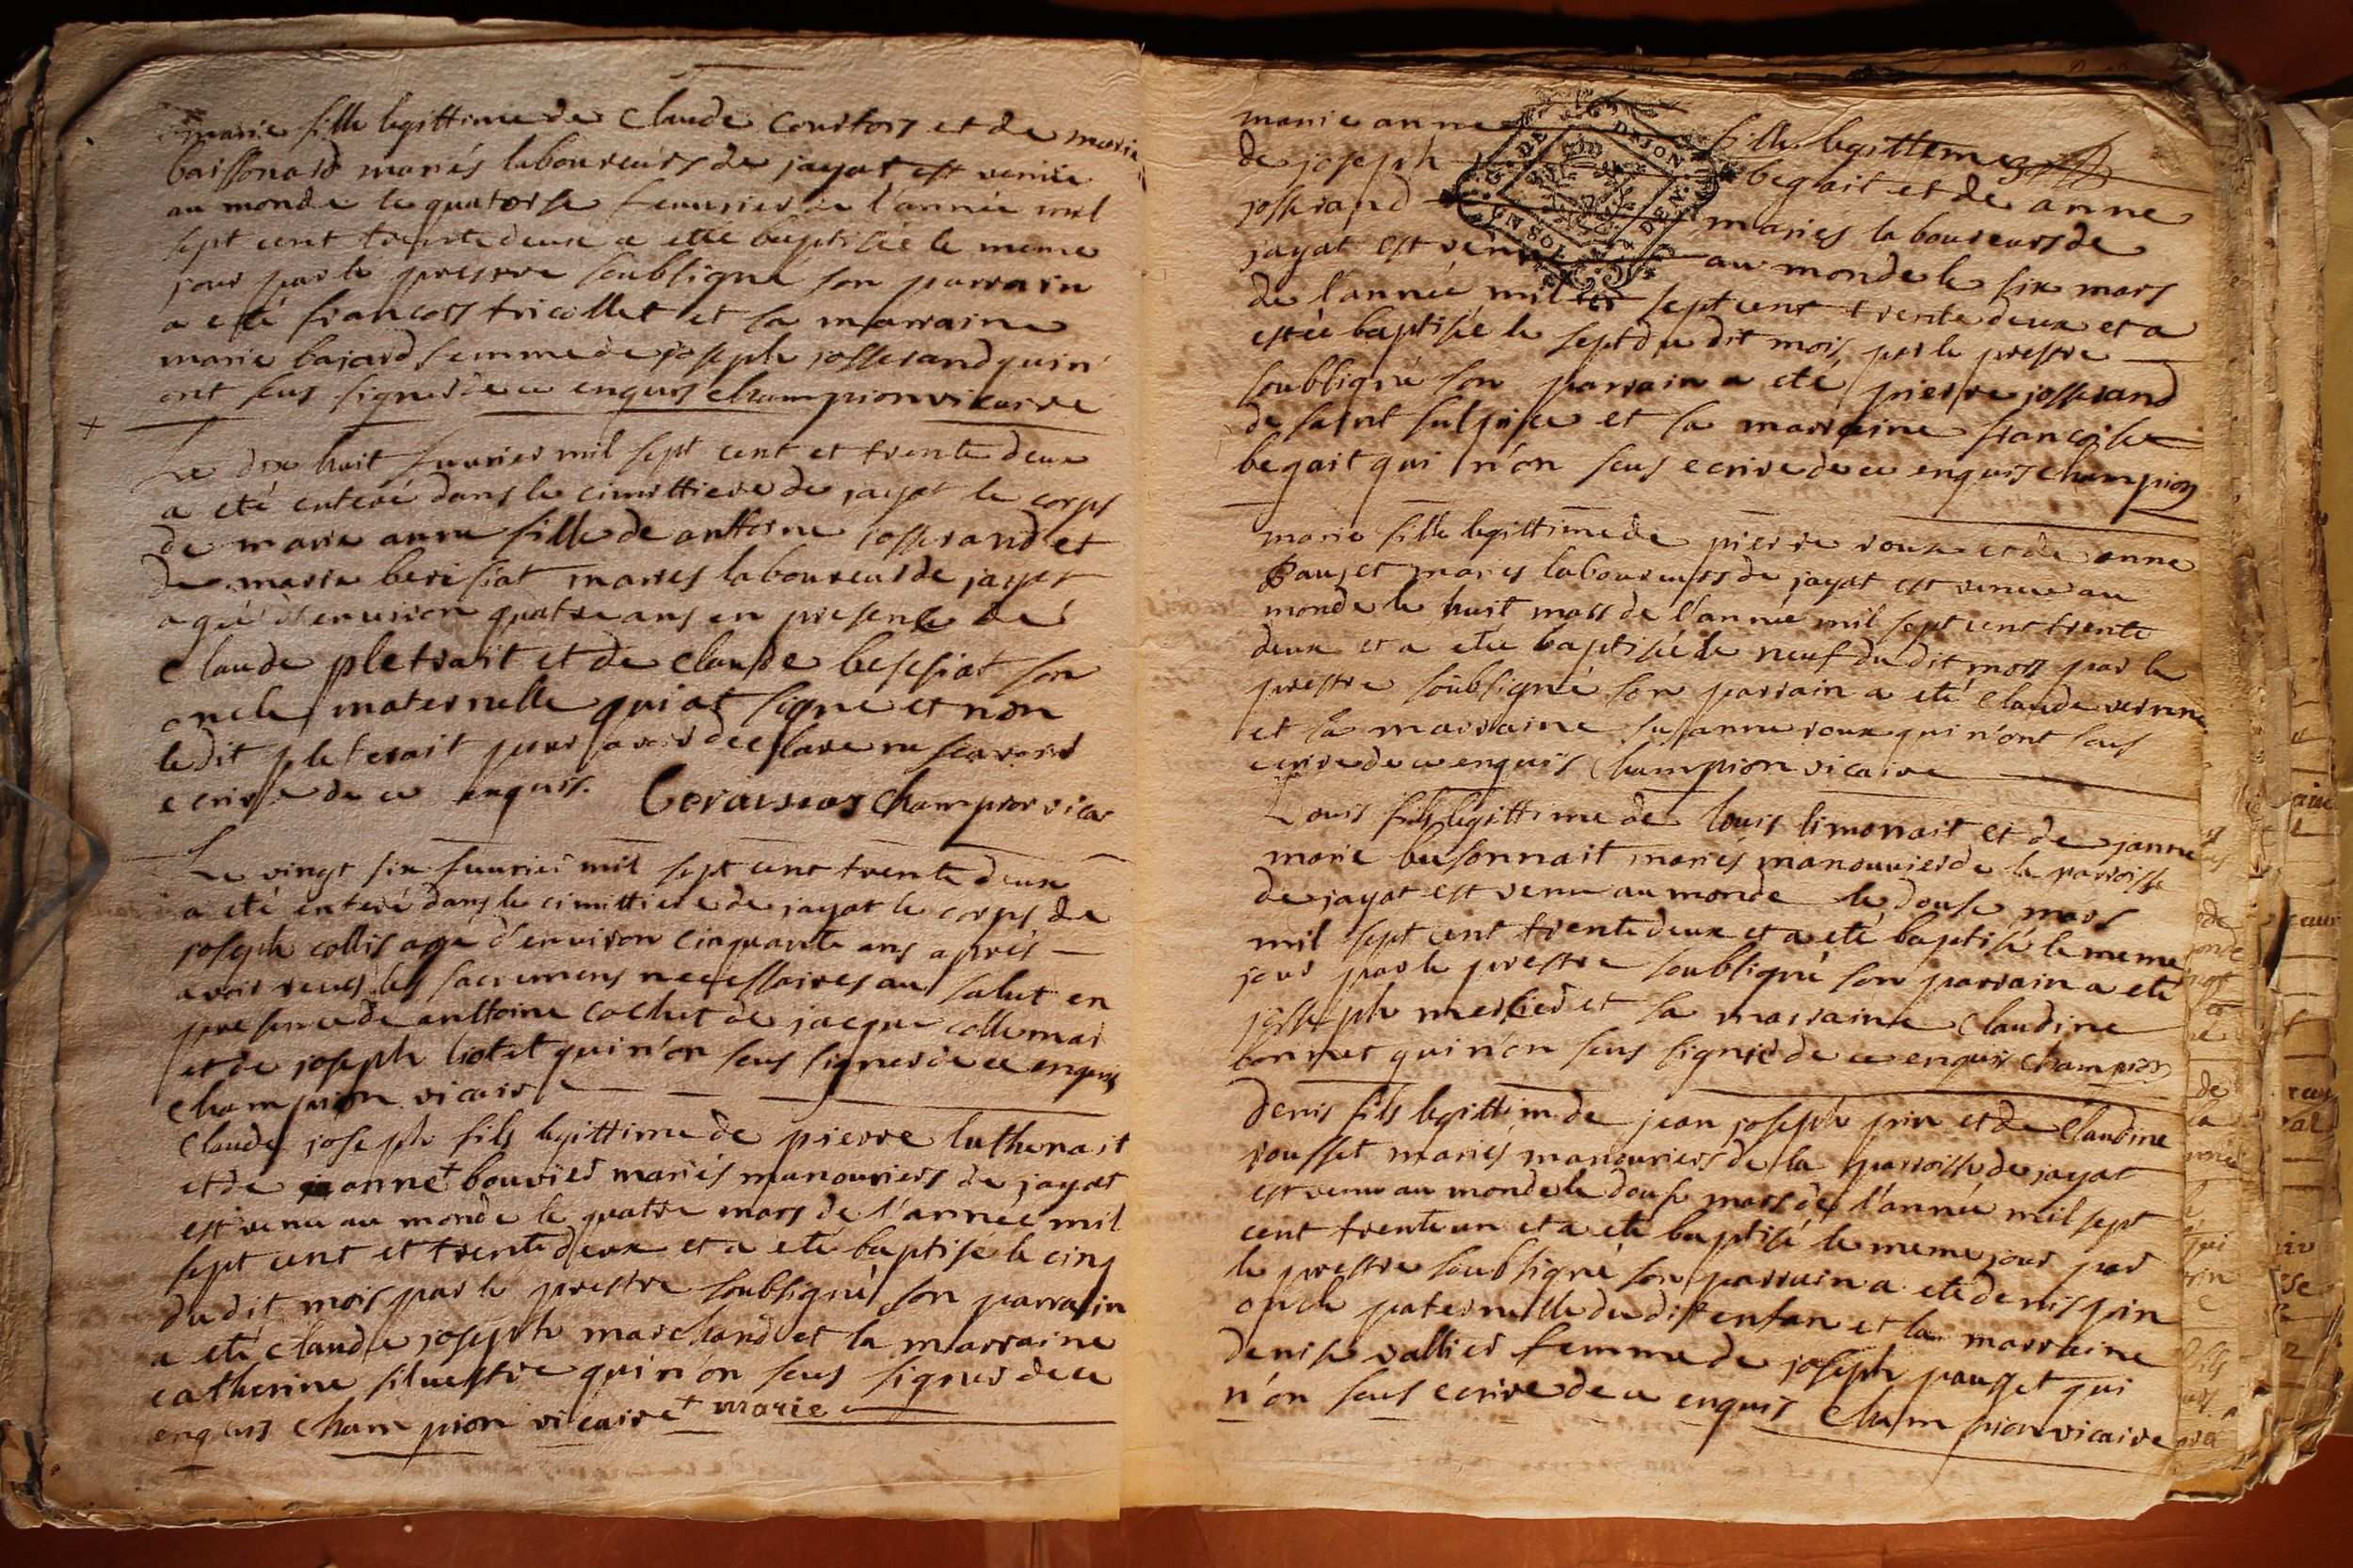 marie fille legittime de Claude Courtois et de marie
boissonard mariés laboureurs de jayat est venue
au monde le quatorse feuurier de l'année mil
sept cent trente deux a eté baptisée le meme
jour par le prestre soubsigné son parrain
a eté francois tricollet et la marraine
marie bajard femme de joseph josserand qui n'
ont seus signer de ce enquis champion vicaire
Le dix huit feuurier mil sept cent et trente deux
a eté enteré dans le cimittiere de jayat le corps
de marie anne fille de anttoine josserand et
de marie mariés laboureurs de jayat
agée d'enuiron quatre ans en presence de
claude pletrait et de claude son
oncle maternelle qui at signe et non
ledit pleterait pour avoir declare ne scavoir
ecrire de ce enquis. champion vicar
Le vingt six feuurier mil sept cent trente deux
a eté enteré dans le cimittiere de jayat le corps de
joseph collis agé d'environ cinquante ans aprés
avoir reeus les sacremens necessaires au salut en
presence de anttoine cochet de jacque
et de joseph liotet qui n'on seus signer de ce enquis
champion vicaire
Claude joseph fils legittime de pierre luthenait
et de janne + bouvier mariés manouuriers de jayat
est venu au monde le quatre mars de l'année mil
sept cent et trente deux et a eté baptisé le cinq
du dit mois par le prestre soubsigné son parrain
a eté claude joseph marchand et la marraine
catherine siluestre qui n'on seus signer de ce
enquis champion vicaire + marie
marie anne fille legittime
de joseph begait et de anne
josserand mariés laboureurs de
jayat est venue au monde le six mars
de l'année mil sept cent trente deux et a
estée baptisée le sept du dit mois par le prestre
soubsigné son parrain a eté pierre josserand
de saint sulpice et la marraine francoise
begait qui n'on seus ecrire de ce enquis champion
marie fille legittime de pierre roux et de anne
pauget mariés laboureurs de jayat est venue au
monde le huit mars de l'année mil sept cent trente
deux et a etée baptisée le neuf du dit mois par le
prestre soubsigné son parrain a eté Claude
et la marraine susanne roux qui n'ont seus
ecrire de ce enquis Champion vicaire
Louis fils legittime de louis limonait et de janne
marie busonnait mariés manouurier de la parroisse
de jayat est venu au monde le douse mars
mil sept cent trente deux et a eté baptisé le meme
jour par le prestre soubsigné son parrain a eté
josseph mercier et la marraine Claudine
bonnet qui n'on seus signer de ce enquis champion
denis fils legittim de jean joseph prin et de Claudine
rousset mariés manouuriers de la parroisse de jayat
est venu au monde le douse mars de l'année mil sept
cent trente un et a eté baptisé le meme jour par
le prestre soubsigné son parrain a eté denis prin
oncle paternelle du dit enfan et la marraine
denise vallier femme de joseph pauget qui
n'on seus ecrire de ce enquis Champion vicaire